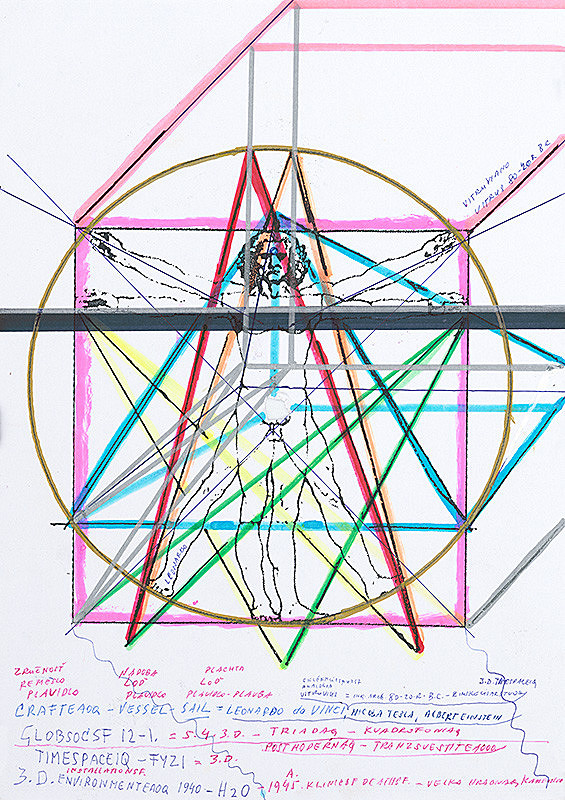 VITRUVIANO
VITRUV. 80-20 R. B.C.
LEONARDO
ZRUČNOSŤ NÁDOBA PLACHTA
REMESLO LOĎ LOĎ
PLAVIDLO PLAVIDLO PLAVIDLO-PLAVBA
VITRUVIUS = 80-20.R. B.C. -
CRAFTEAOQ - VESSEL-SAIL = LEONARDO da VINCI, NICOLA TESLA, ALBERT EINSTEIN
GLOBSOCSF 12-1. = 5.4.3.D - TRIADAQ - KVADROFONIAQ
POSTMODERNAQ - TRANZSVESTITEAOOQ
TIMESPACEIQ - FYZI = 3.D.
INSTALLATIONSF.
3.D. ENVIRONMENTEAOQ 1940 - H2O - 1945. KLINIEST DEATHSF. - VEĽKÁ HRADNÁQ,
A.